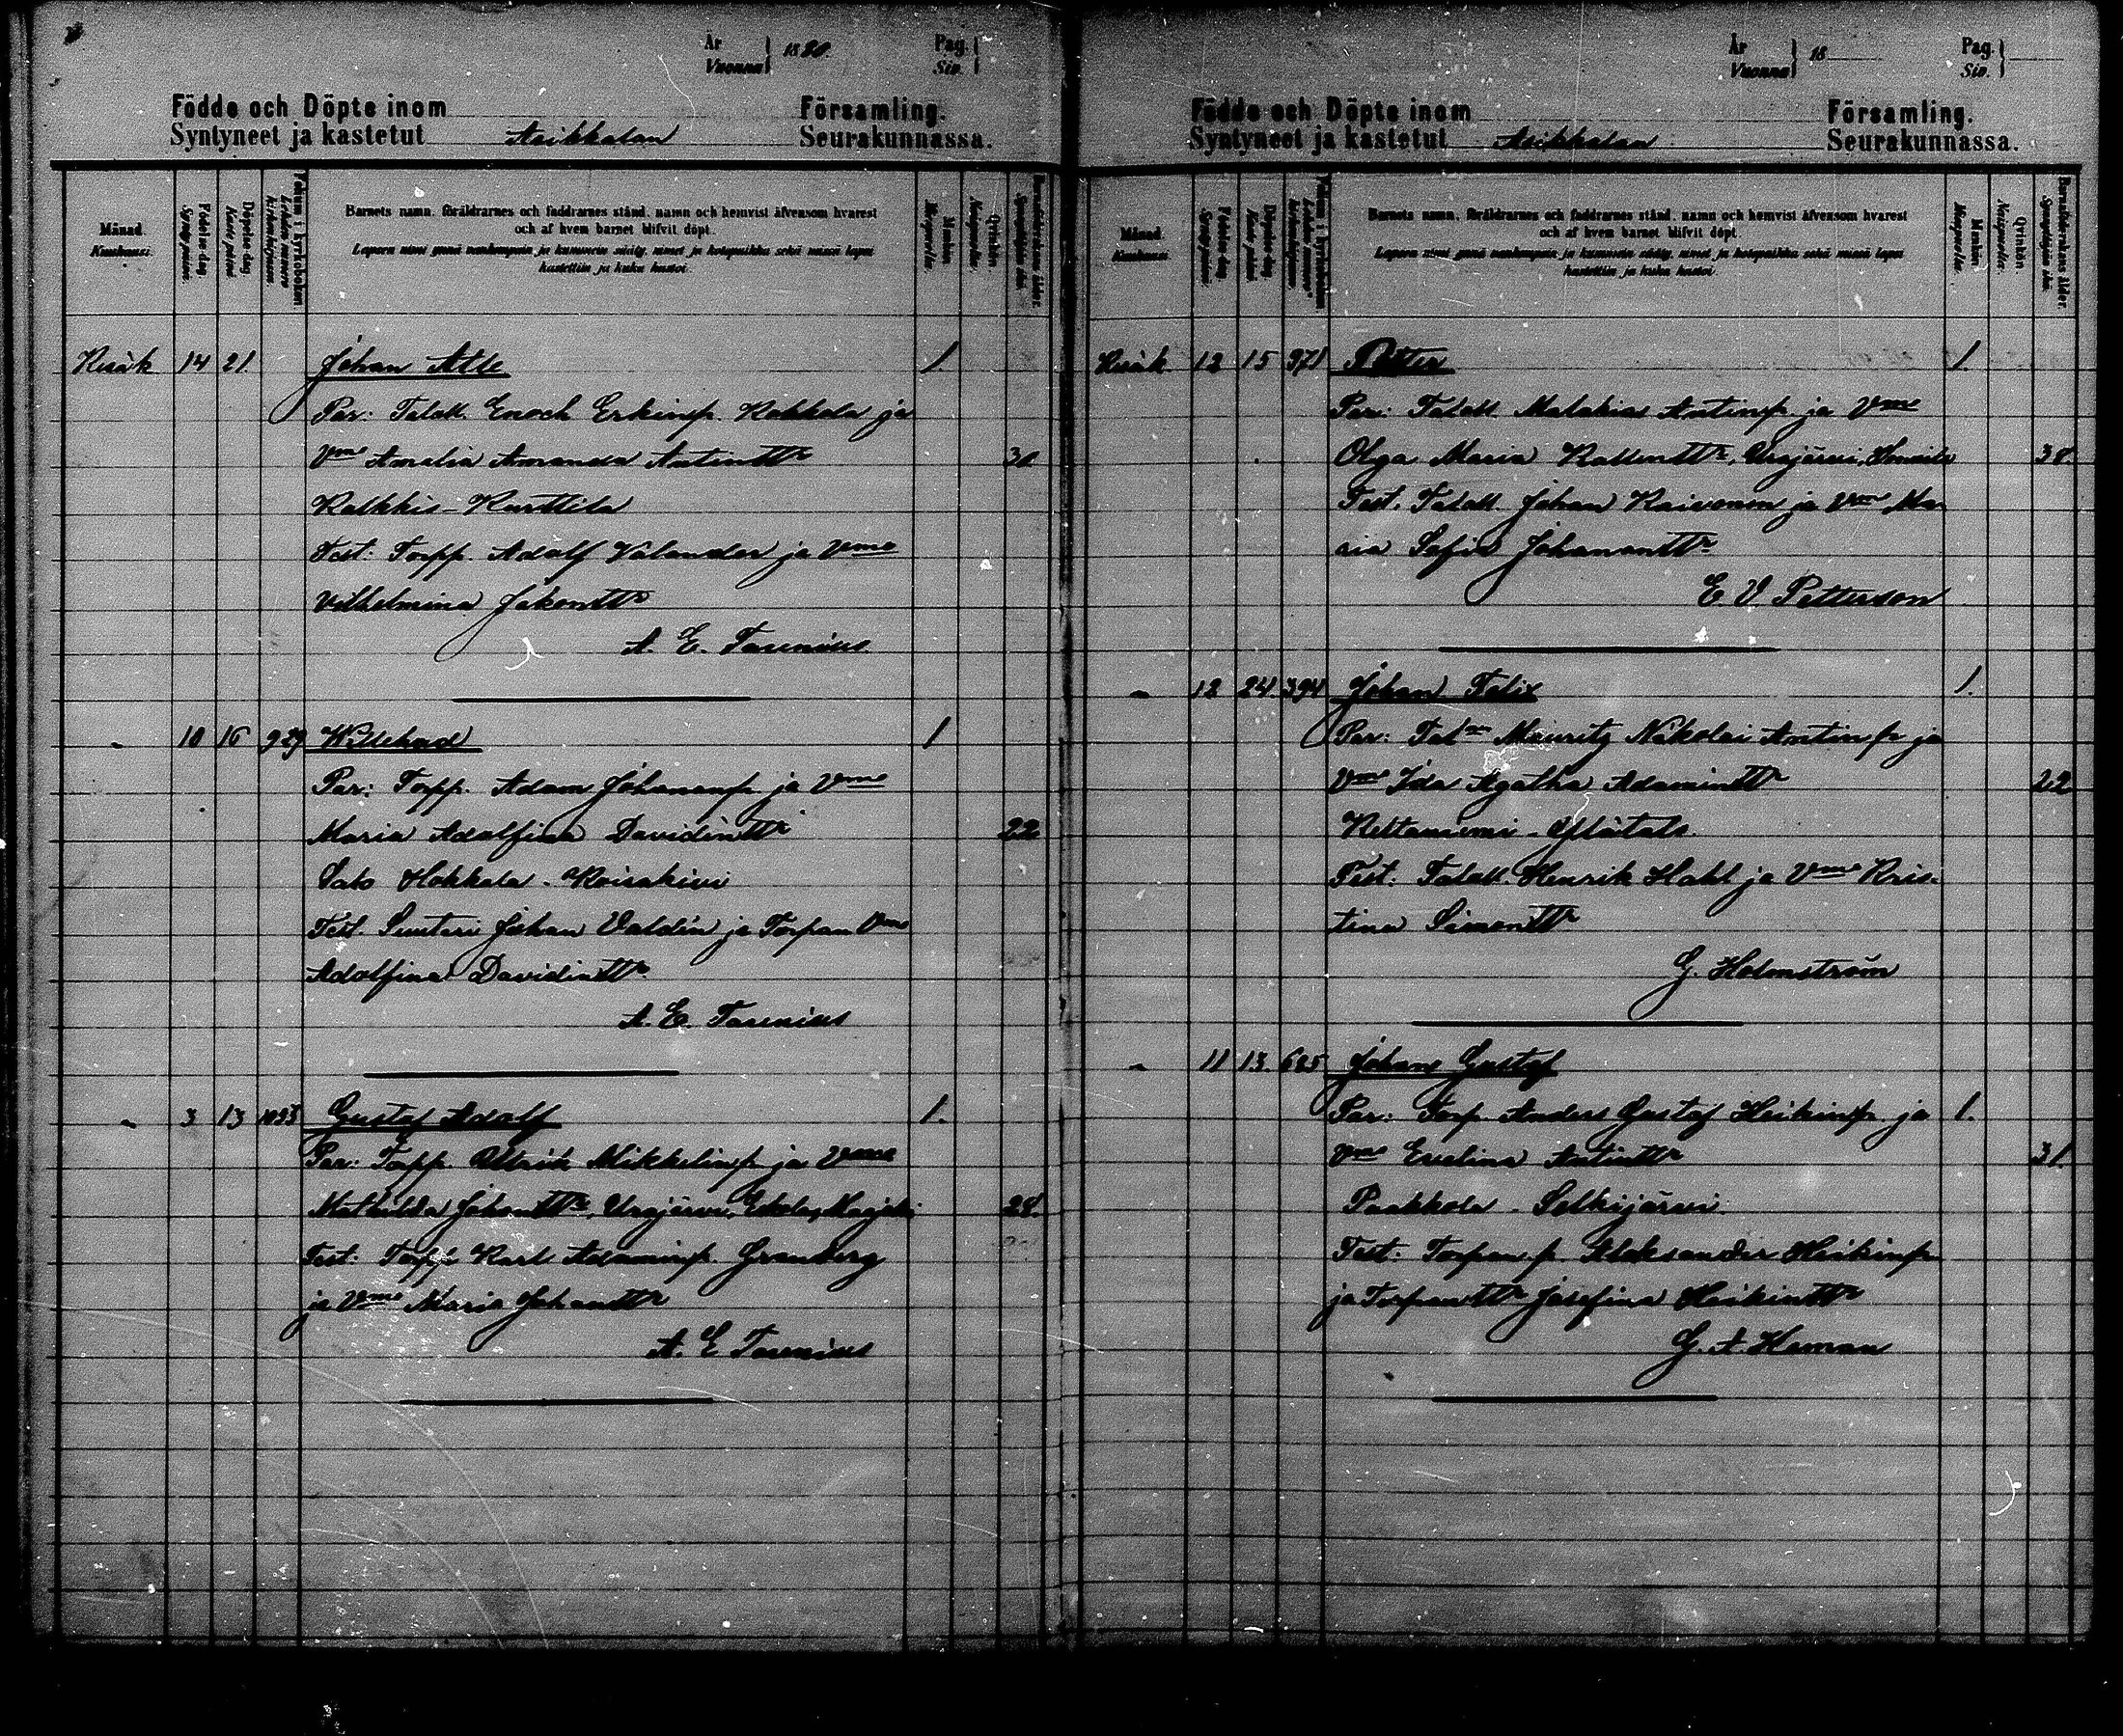 År
Vuonna } 1880.
Pag.
Siv.
Födde och Döpte inom Församling.
Syntyneet ja kastetut Asikkalan Seurakunnassa.
Månad. Kuukausi.
Födelse-dag. Synty-päivä.
Döpelse-dag. Kaste-päivä.
Barnets namn, föräldrarnes och faddrarnes stånd, namn och hemvist äfvensom hvarest
och af hvem barnet blifvit döpt.
Lapsen nimi ynnä vanhempain ja kummein sääty, nimet ja kotopaikka sekä missä lapsi
kastettiin ja kuka kastoi.
Mankön. Miespuolia.
Qvinkön. Naispuolia.
Kesäk 14 21 Johan Atle 1.
Par: Talall. Enoch Erkinp. Kokkola ja
Vmo Amalia Amanda Antintr 30
Kalkkis - Kurttila
Test: Torpp. Adolf Valander ja Vmo
Vilhelmina Jakontr
A. E. Tarenius
" 10 16 929 Willehad 1
Par: Torpp. Adam Johananp. ja Vmo
Maria Adolfina Davidintr 22
Salo Hokkala - Koisakivi
Test. Suutari Johan Valdén ja Torpan Vmo
Adolfina Davidintr
A. E. Tarenius
" 3 13 1093 Gustaf Adolf 1.
Par: Torpp. Ulrik Mikkelinp. ja Vmo
Mathilda Johantr, Urajärvi, 28.
Test: Torpp. Karl Adaminp. Granberg
ja Vmo Maria Johantr
A. E Tarenius
År
Vuonna } 18
Pag.
Siv.
Födde och Döpte inom Församling.
Syntyneet ja kastetut Asikkalan Seurakunnassa.
Månad. Kuukausi.
Födelse-dag. Synty-päivä.
Döpelse-dag. Kaste-päivä.
Barnets namn, föräldrarnes och faddrarnes stånd, namn och hemvist äfvensom hvarest
och af hvem barnet blifvit döpt.
Lapsen nimi ynnä vanhempain ja kummein sääty, nimet ja kotopaikka sekä missä lapsi
kastettiin ja kuka kastoi.
Mankön. Miespuolia.
Qvinkön. Naispuolia.
Kesäk 12 15 971 Petter 1.
Par: Talall Malakias Antinp. ja Vmo
Olga Maria Kallentr, Urajärvi, 38.
Test. Talall. Johan Kaivonen ja Vmo Ma
ria Sofia Johanantr
E. V. Petterson
" 12 24. 394 Johan Felix 1.
Par: Mauritz Nikolai Antinp ja
Vmo Ida Agatha Adamintr 22
Keltaniemi -
Test: Talall. Henrik Hahl ja Vmo Kris-
tina Simontr
G. Holmström
" 11 13. 685 Johan Gustaf
Par: Torp. Anders Gustaf Heikinp. ja 1.
Vmo Evelina Antintr 31.
Paakkola - Salkijärvi
Test: Torpan p. Aleksander Heikinp
ja Torpantr Josefina Heikintr
G. A. Heman